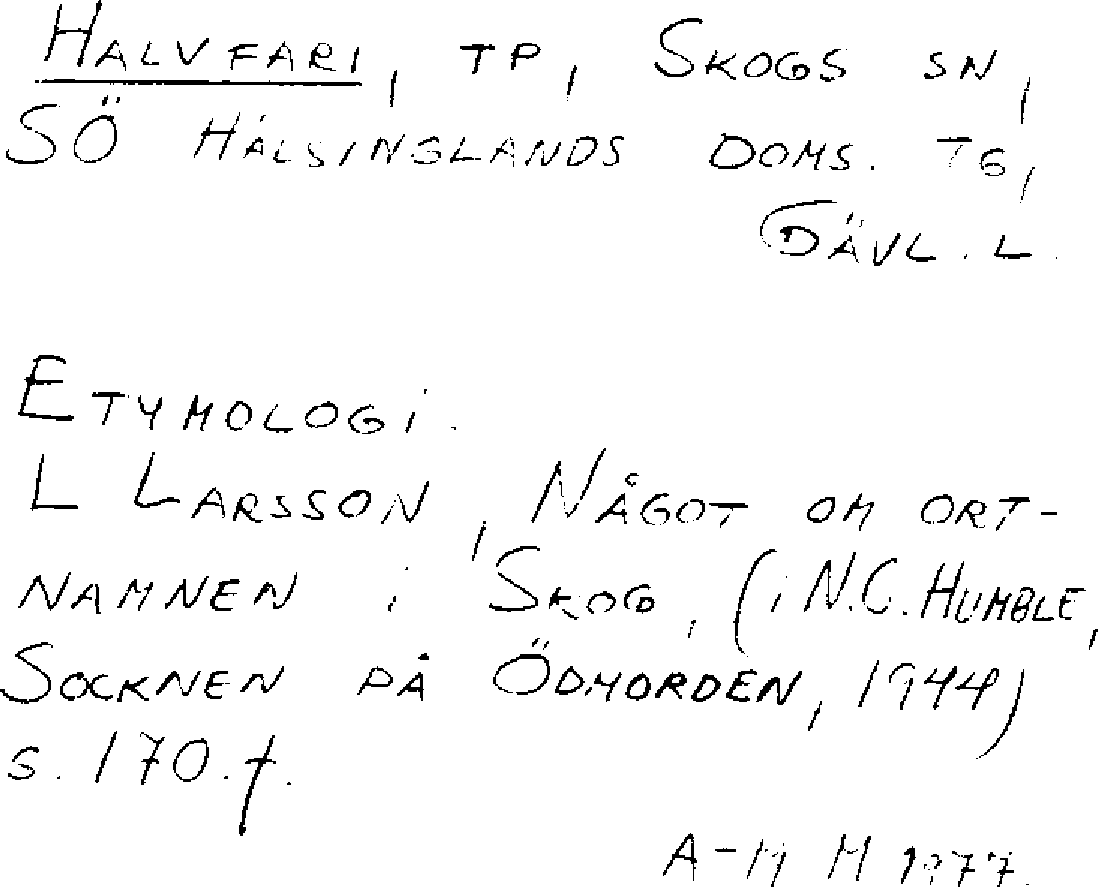 HALVFARI, TP, SKOGS SN,
SÖ HÄLSINGLANDS DOMS. TG,
GÄVL. L.
ETYMOLOGI.
L LARSSON, NÅGOT OM ORT-
NAMNEN i SKOG, (i N.C. HUMBLE,
SOCKNEN PÅ ÖDMORDEN, 1944)
s. 170.f.
A-M H 1977.